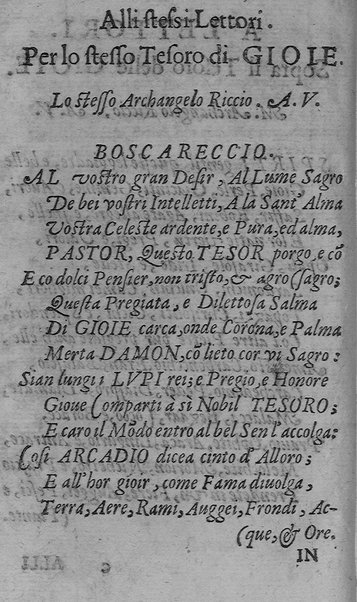 Alli stessi Lettori.
Per lo stesso Tesoro di GIOIE.
Lo stesso Archangelo Riccio. A. V.
BOSCARECCIO.
AL vostro gran Desir, Al Lume Sagro
De bei vostri Intelletti, A la Sant' Alma
Vostra Celeste ardente, e Pura, ed alma,
PASTOR, Questo TESOR porgo, e cõ
E co dolci Pensier, non tristo, & agro (sagro;
Questa Pregiata, e Dilettosa Salma
Di GIOIE carca, onde Corona, e Palma
Merta DAMON, cõ lieto cor vi Sagro:
Sian lungi i LVPI rei; e Pregio, e Honore
Gioue Comparti à sì Nobil TESORO;
E caro il Mõdo entro al bel Sen l'accolga:
Così ARCADIO dicea cinto d'Alloro;
E all'hor gioir, come Fama diuolga,
Terra, Aere, Rami, Auggei, Frondi, Ac-
(que, & Ore.
IN